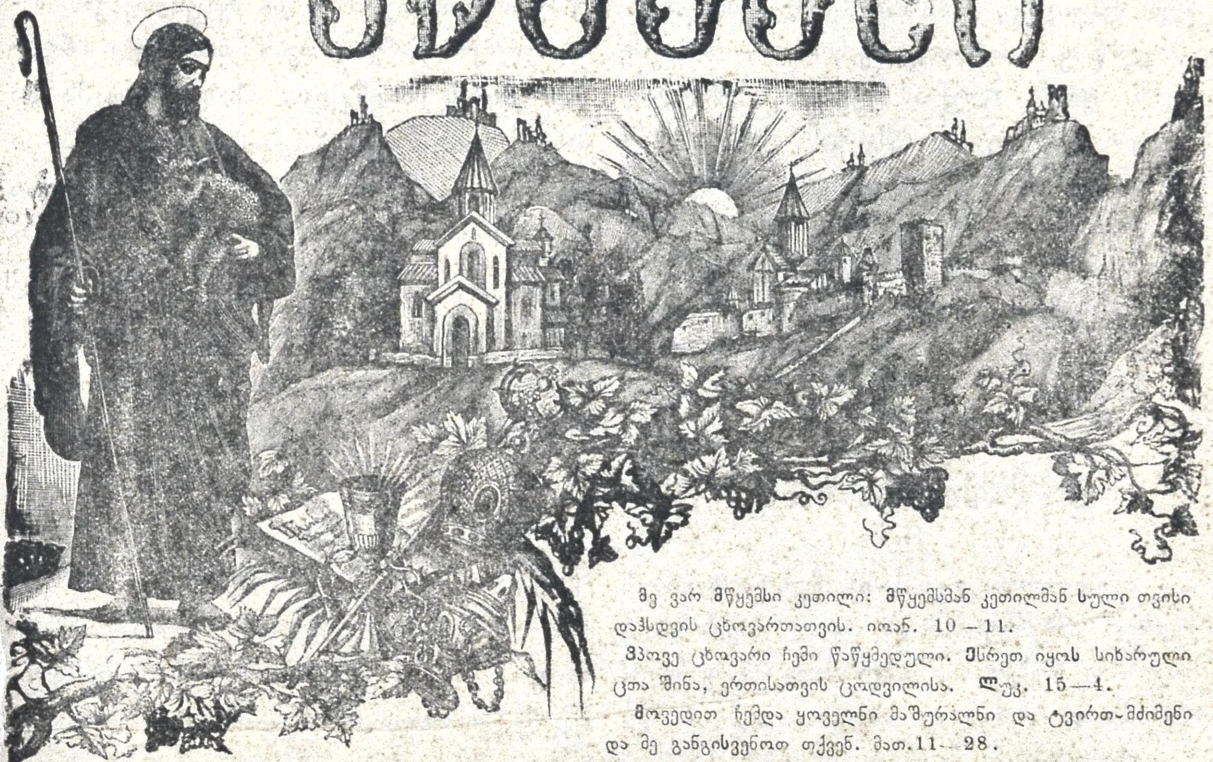 მე ვარ მწყემსი კეთილი: მწყემსმან კეთილმან სული თვისი
დაჰსდვის ცხოვართათვის. იოან. 10 – 11.
ვპოვე ცხოვარი ჩემი წაწყმედული. ესრეთ იყოს სიხარული
ცთა შინა, ერთისათვის ცოდვილისა. ლუკ. 15—4.
მოვედით ჩემდა ყოველნი მაშურალნი და ტვირთ-მძიმენი
და მე განგისვენოთ თქვენ. მათ.11 – 28.